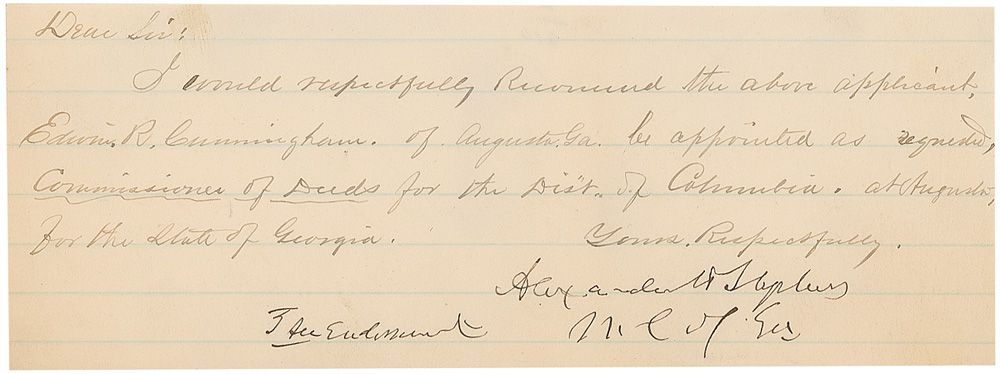 Dear Sir:
I would respectfully Recommend the above applicant,
Edwin R. Cunningham. of Augusta. Ga. be appointed as requested,
Commissioner of Deeds for the Dist. of Columbia. at Augusta,
for the State of Georgia. Yours. Respectfully.
Alexander H Stephens
See Endorsement M C of Ga